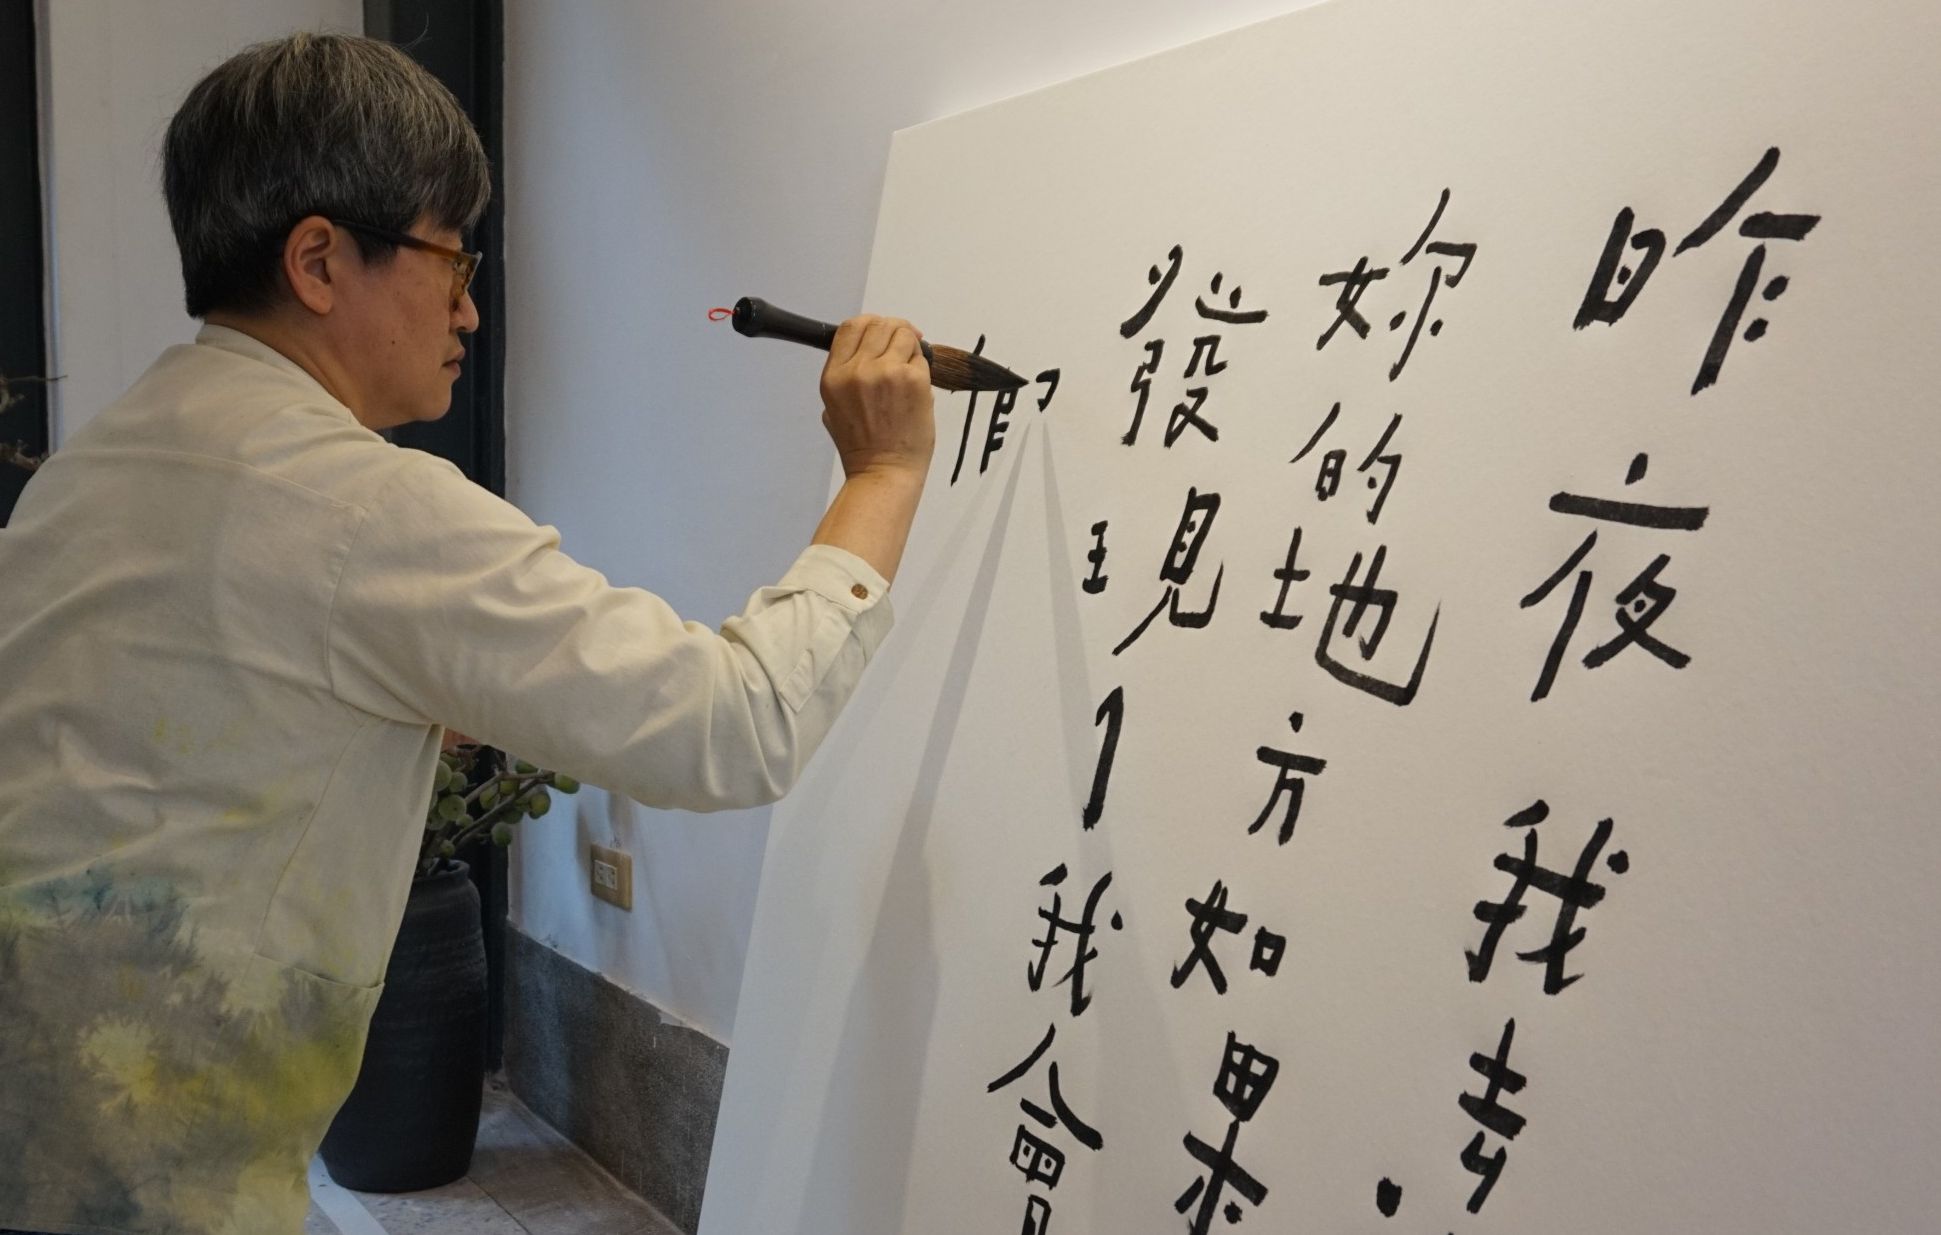 昨夜我去
妳的地方如果
發現了我會